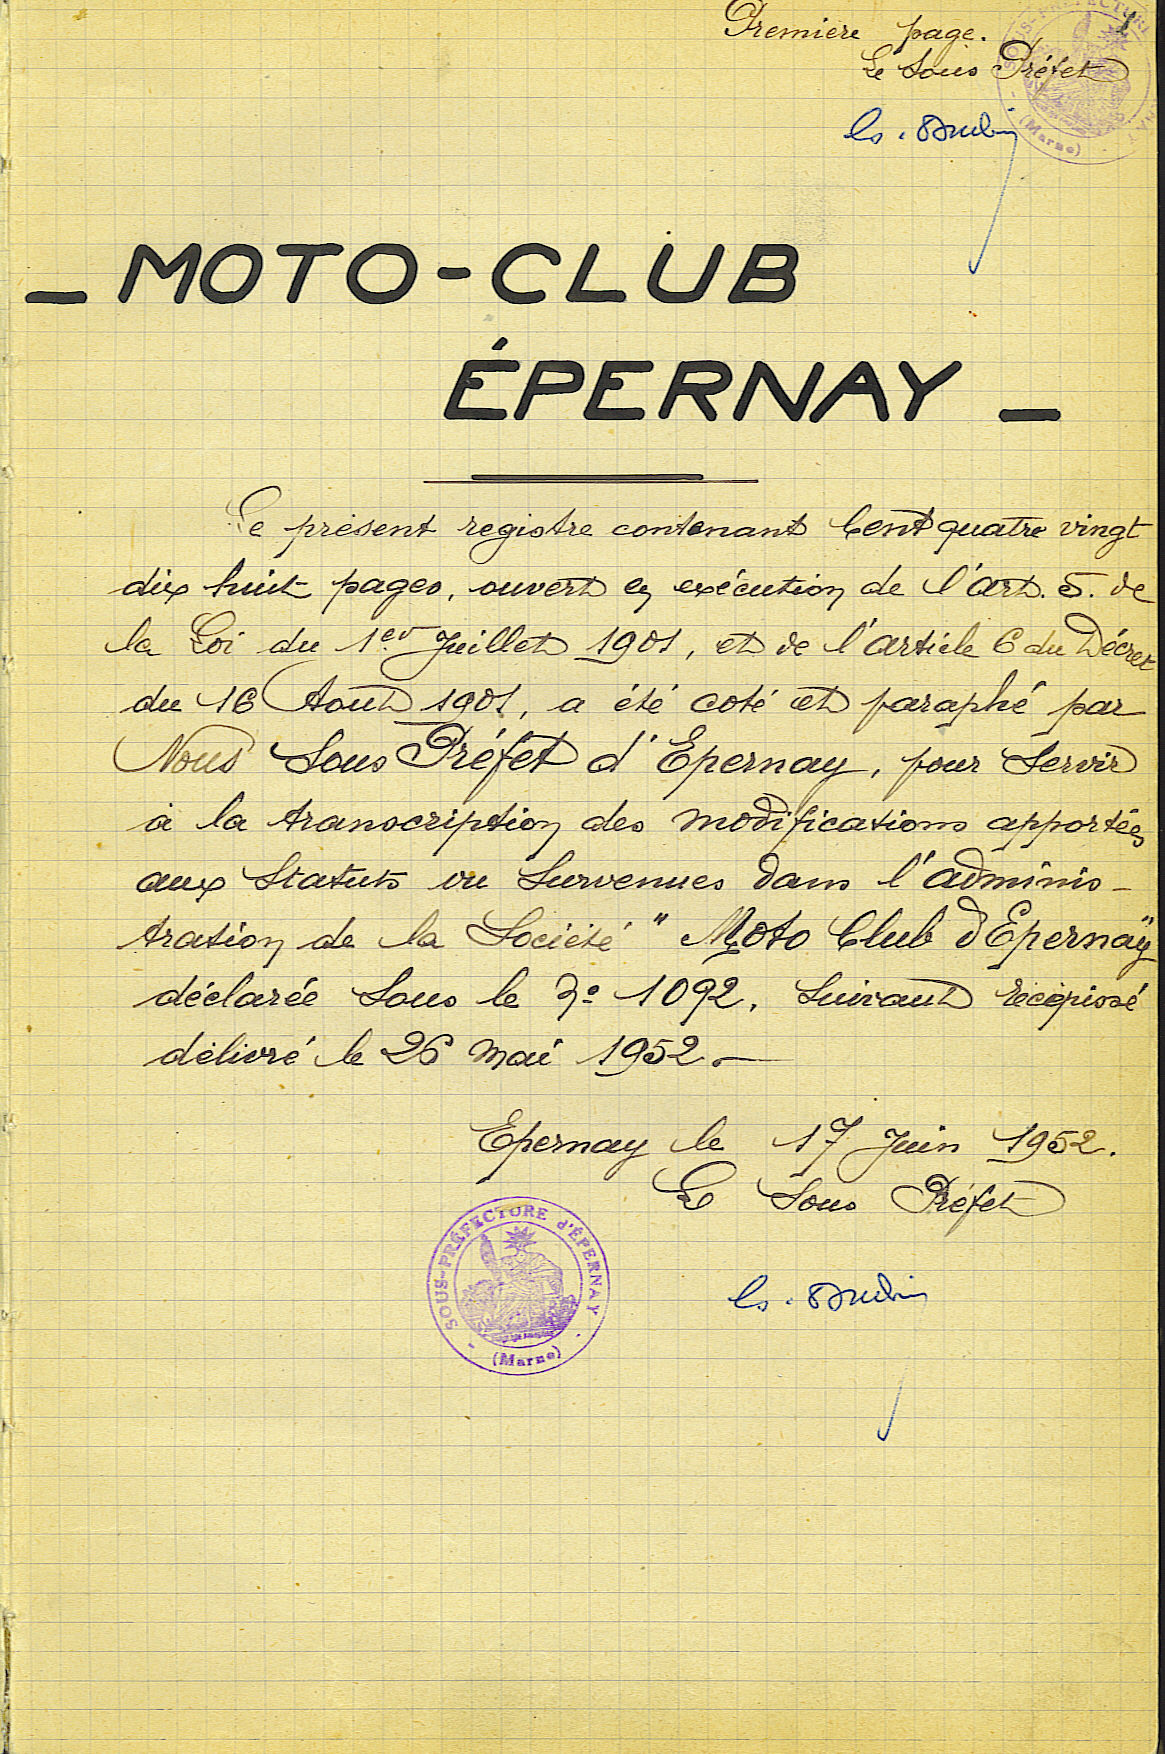 1
Première page.
Le Sous Préfet
- MOTO-CLUB
ÉPERNAY -
Le présent registre contenant Cent quatre vingt
dix huit pages, ouvert en exécution de l'art. 5. de
la Loi du 1er Juillet 1901, et de l'article 6 du Décret
du 16 Août 1901, a été coté et paraphé par
Nous Sous Préfet d'Epernay, pour Servir
à la transcription des modifications apportées
aux Statuts ou Survenues dans l'adminis-
tration de la Société "Moto Club d'Epernay"
déclarée Sous le No 1092, Suivant récépissé
délivré le 26 Mai 1952.-
Epernay le 17 Juin 1952.
Le Sous Préfet
SOUS-PRÉFECTURE d'ÉPERNAY
(Marne)